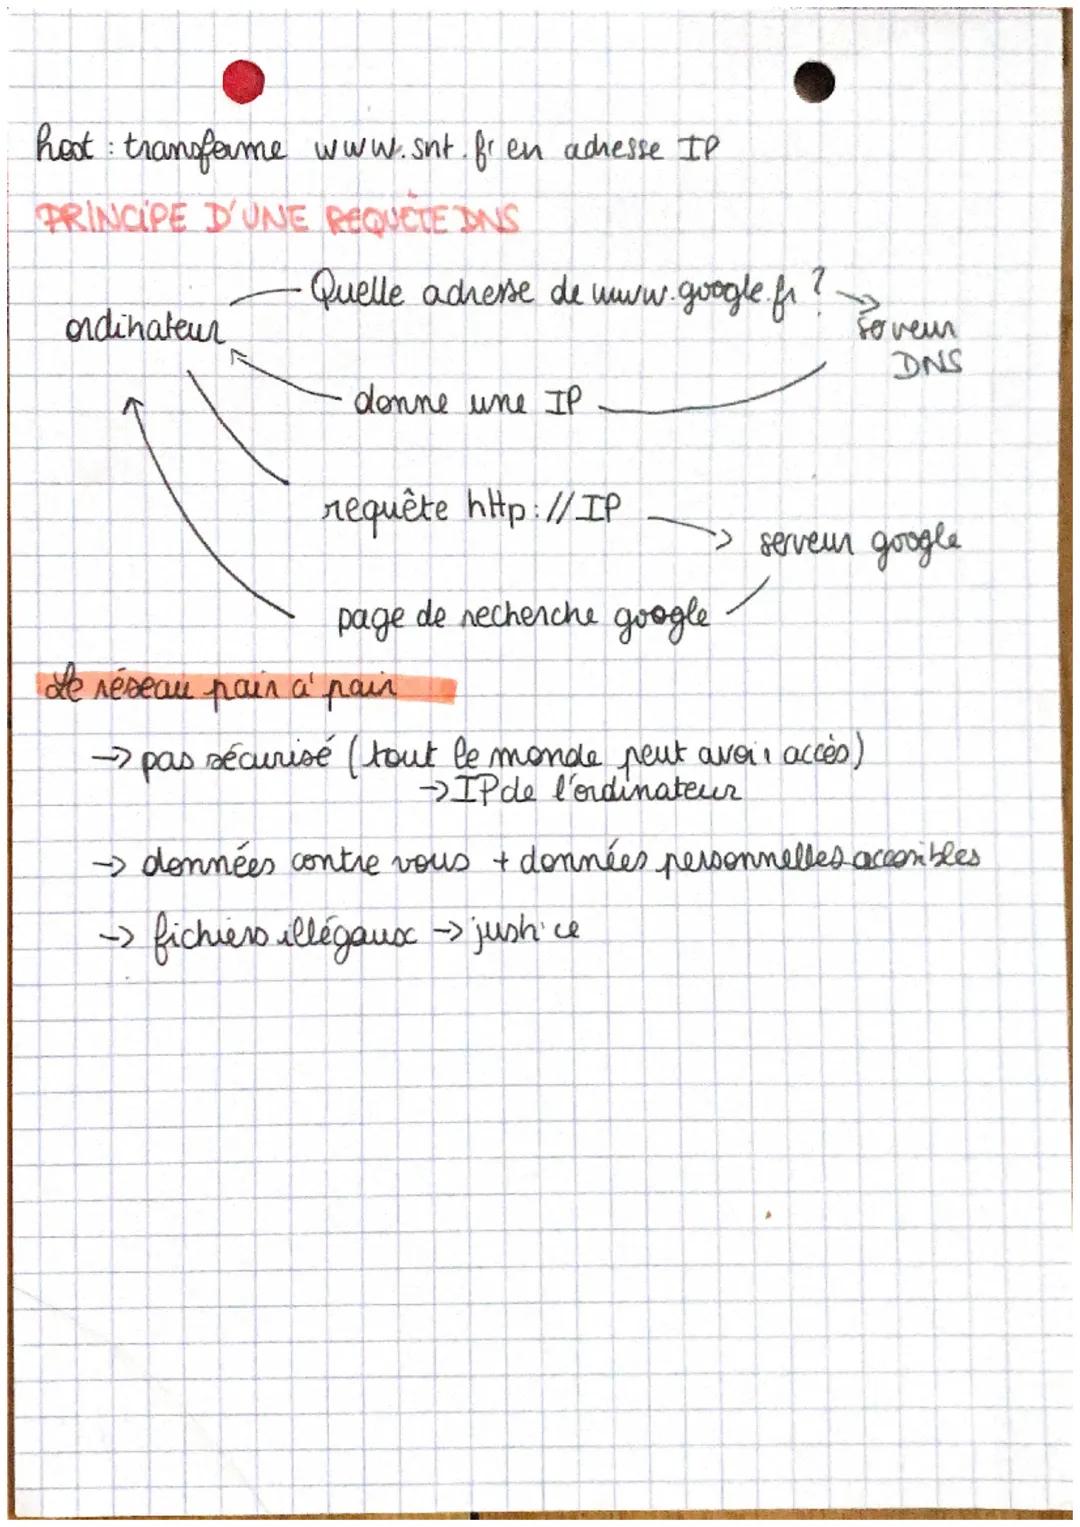 host : transforme www.snt.fr en adresse IP
PRINCIPE D'UNE REQUÊTE DNS
Quelle adresse de www.google.fr ?
ordinateur
serveur
DNS
donne une IP
requête http://IP
serveur google
page de recherche google
Le réseau pair à pair
-> pas sécurisé (tout le monde peut avoir accès)
-> IP de l'ordinateur
-> données contre vous + données personnelles accessibles
-> fichiers illégaux -> justice